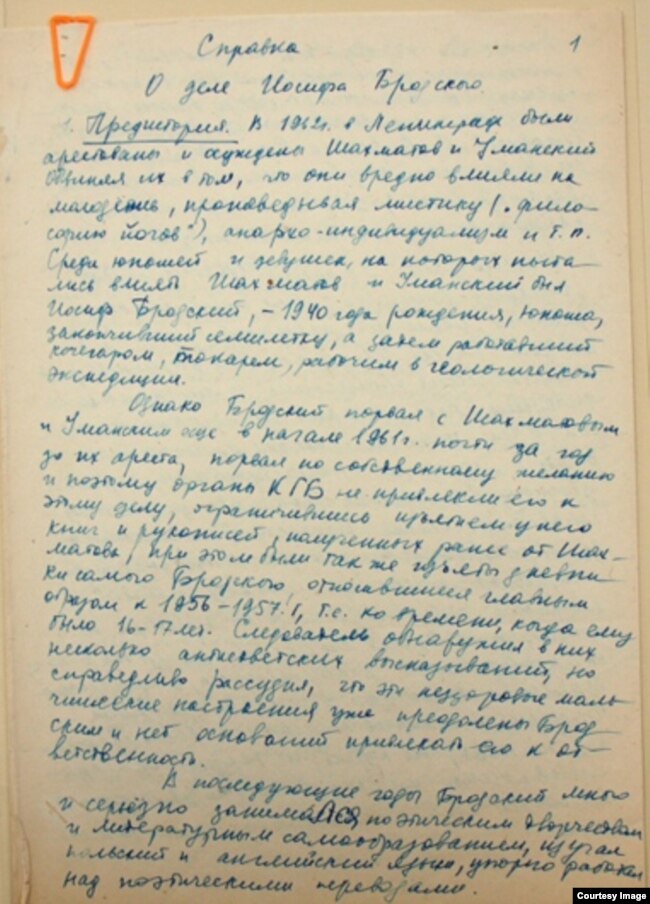 Справка
1
О деле Иосифа Бродского.
1. Предистория. В 1962г. в Ленинграде были
арестованы и осуждены Шахматов и Уманский
обвиняя их в том, что они вредно влияли на
молодежь, проповедывая мистику (" фило-
софию йогов"), анархо-индивидуализм и т.п.
Среди юношей и девушек, на которых пыта
лись влиять Шахматов и Уманский был
Иосиф Бродский, – 1940 года рождения, юноша,
закончивший семилетку, а затем работавший
кочегаром, токарем, рабочим в геологической
экспедиции.
Однако Бродский порвал с Шахматовым
и Уманским еще в начале 1961г. почти за год
до их ареста, порвал по собственному желанию
и поэтому органы КГБ не привлекли его к
этому делу, ограничившись изъятием у него
книг и рукописей, полученных ранее от Шах-
матова, при этом были также изъяты дневни
ки самого Бродского относившиеся главным
образом к 1956–1957г., т.е. ко времени, когда ему
было 16-17 лет. Следователь обнаружил в них
несколько антисоветских высказываний, но
справедливо рассудил, что эти нездоровые маль-
чишеские настроения уже преодолены Брод
ским и нет оснований привлекать его к от-
ветственности.
В последующие годы Бродский много
и серьезно занимался поэтическим творчеством
и литературным самообразованием, изучал
польский и английский языки, упорно работал
над поэтическими переводами.
Courtesy Image